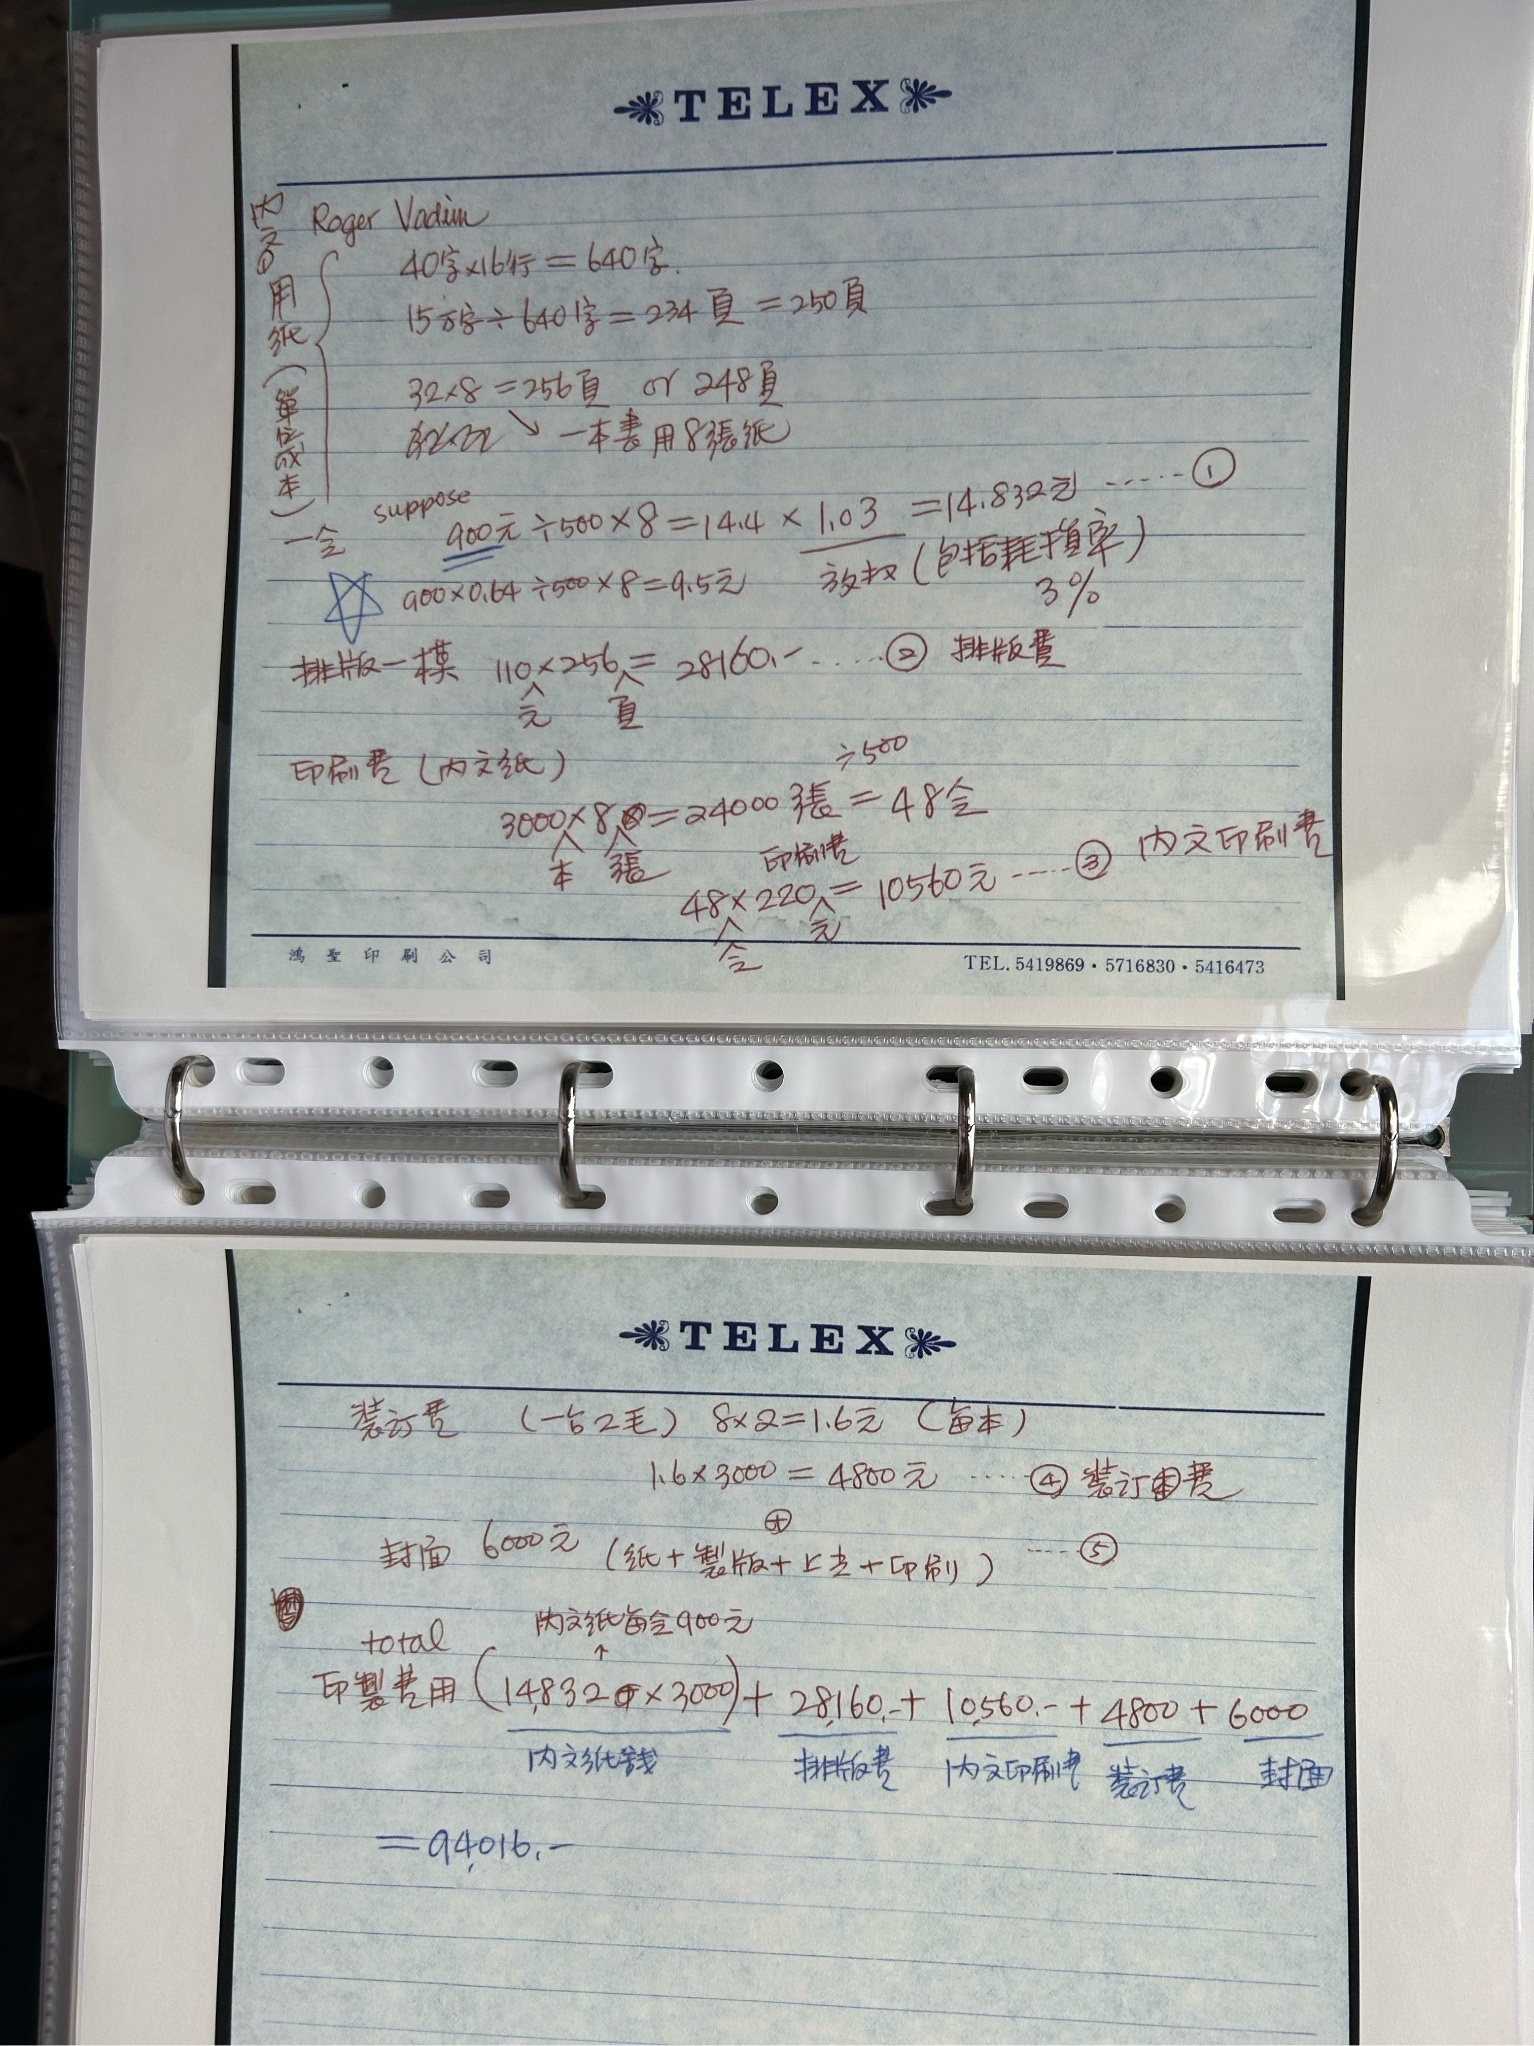 TELEX
內容用紙(單位成本)
Roger Vadim
40字×16行=640字.
15万字÷640字=234頁=250頁
32×8=256頁 or 248頁
一本書用8張紙
suppose
一令 900元÷500×8=14.4×1.03=14.832元 ……①
放扠(包括耗損率)
3%
900×0.64÷500×8=9.5元
排版一模 110×256=28160.- ……② 排版費
元 頁
印刷費(內文紙)
÷500
3000×8=24000張=48令
本 張 印刷費
48×220=10560元 ……③ 內文印刷費
令 元
鴻聖印刷公司 TEL. 5419869・5716830・5416473
TELEX
裝訂費 (一台2毛) 8×2=1.6元 (每本)
1.6×3000=4800元 ……④ 裝訂費
封面 6000元 (紙+製版+上光+印刷) ……⑤
內文紙每令900元
total
印製費用(14.832×3000)+28,160.-+10,560.-+4800+6000
內文紙錢 排版費 內文印刷費 裝訂費 封面
=94,016.-